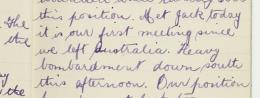 this position. Met Jack today
The it is our first meeting since
the we left Australia. Heavy
bombardment down south
this afternoon. Our position